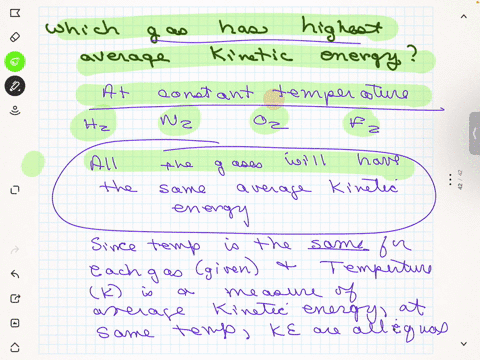 which gas has highest
average kinetic energy?
At constant temperature
H2 N2 O2 F2
All the gases will have
the same average kinetic
energy
Since temp is the same for
each gas (given) & Temperture
(K) is a measure of
average kinetic energy, at
same temp, KE are all equal
42 / 42